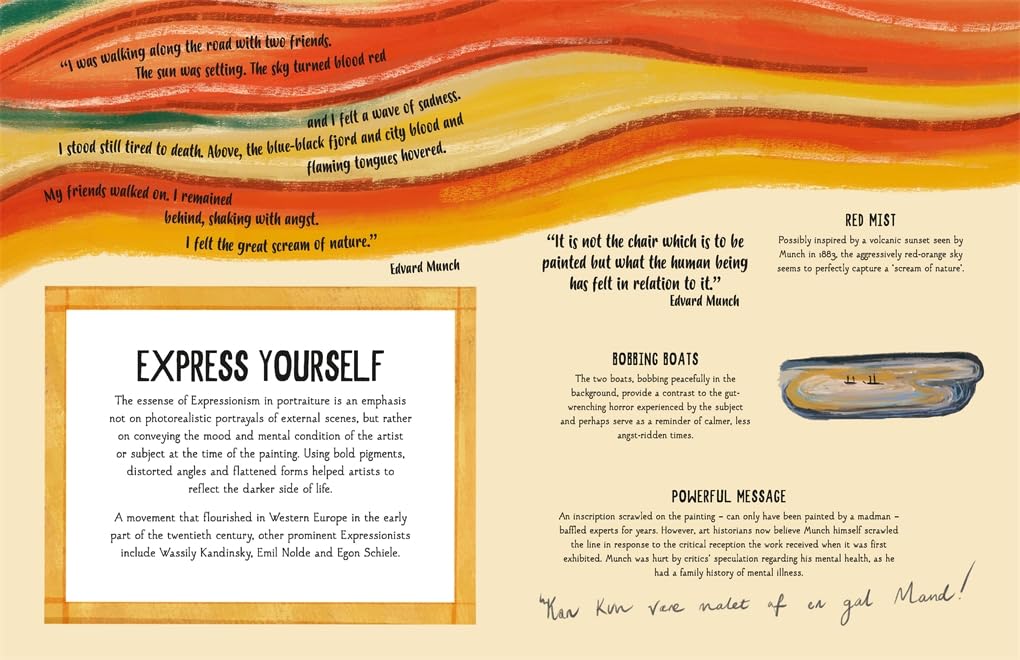 “I was walking along the road with two friends.
The sun was setting. The sky turned blood red
and I felt a wave of sadness.
I stood still tired to death. Above, the blue-black fjord and city blood and
flaming tongues hovered.
My friends walked on. I remained
behind, shaking with angst.
I felt the great scream of nature.”
Edvard Munch
EXPRESS YOURSELF
The essense of Expressionism in portraiture is an emphasis
not on photorealistic portrayals of external scenes, but rather
on conveying the mood and mental condition of the artist
or subject at the time of the painting. Using bold pigments,
distorted angles and flattened forms helped artists to
reflect the darker side of life.
A movement that flourished in Western Europe in the early
part of the twentieth century, other prominent Expressionists
include Wassily Kandinsky, Emil Nolde and Egon Schiele.
“It is not the chair which is to be
painted but what the human being
has felt in relation to it.”
Edvard Munch
RED MIST
Possibly inspired by a volcanic sunset seen by
Munch in 1883, the aggressively red-orange sky
seems to perfectly capture a ‘scream of nature’.
BOBBING BOATS
The two boats, bobbing peacefully in the
background, provide a contrast to the gut-
wrenching horror experienced by the subject
and perhaps serve as a reminder of calmer, less
angst-ridden times.
POWERFUL MESSAGE
An inscription scrawled on the painting – can only have been painted by a madman –
baffled experts for years. However, art historians now believe Munch himself scrawled
the line in response to the critical reception the work received when it was first
exhibited. Munch was hurt by critics’ speculation regarding his mental health, as he
had a family history of mental illness.
“Kan Kun være malet af en gal Mand!